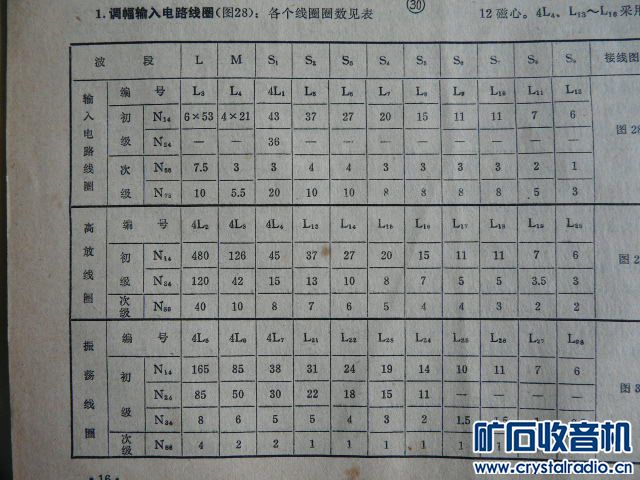 1. 调幅输入电路线圈(图28)：各个线圈圈数见表
30
12磁心。4L₄、L₁₃～L₁₆采用
波段 L M S₁ S₂ S₃ S₄ S₅ S₆ S₇ S₈ S₉ 接线图
输入电路线圈 编号 L₃ L₄ 4L₁ L₅ L₆ L₇ L₈ L₉ L₁₀ L₁₁ L₁₂ 图28
初级 N₁₄ 6×53 4×21 43 37 27 20 15 11 11 7 6
N₂₄ — — 36 — — — — — — — —
次级 N₅₈ 7.5 3 3 4 4 3 3 3 3 2 1
N₇₃ 10 5.5 20 10 10 8 8 8 8 5 3
高放线圈 编号 4L₂ 4L₃ 4L₄ L₁₃ L₁₄ L₁₅ L₁₆ L₁₇ L₁₈ L₁₉ L₂₀ 图2
初级 N₁₄ 480 126 45 37 27 20 15 11 11 7 6
N₃₄ 120 42 15 13 10 8 7 5 5 3.5 3
次级 N₅₈ 40 10 8 7 6 5 4 4 3 2 2
振荡线圈 编号 4L₅ 4L₆ 4L₇ L₂₁ L₂₂ L₂₃ L₂₄ L₂₅ L₂₆ L₂₇ L₂₈ 图3
初级 N₁₄ 165 85 38 31 24 19 14 10 11 7 6
N₂₄ 85 50 30 22 18 15 11 — — — —
N₃₄ 8 6 5 5 4 3 2 1.5
次级 N₅₈ 4 2 2 1 1 1 1 1
·16·
矿石收音机
www.crystalradio.cn